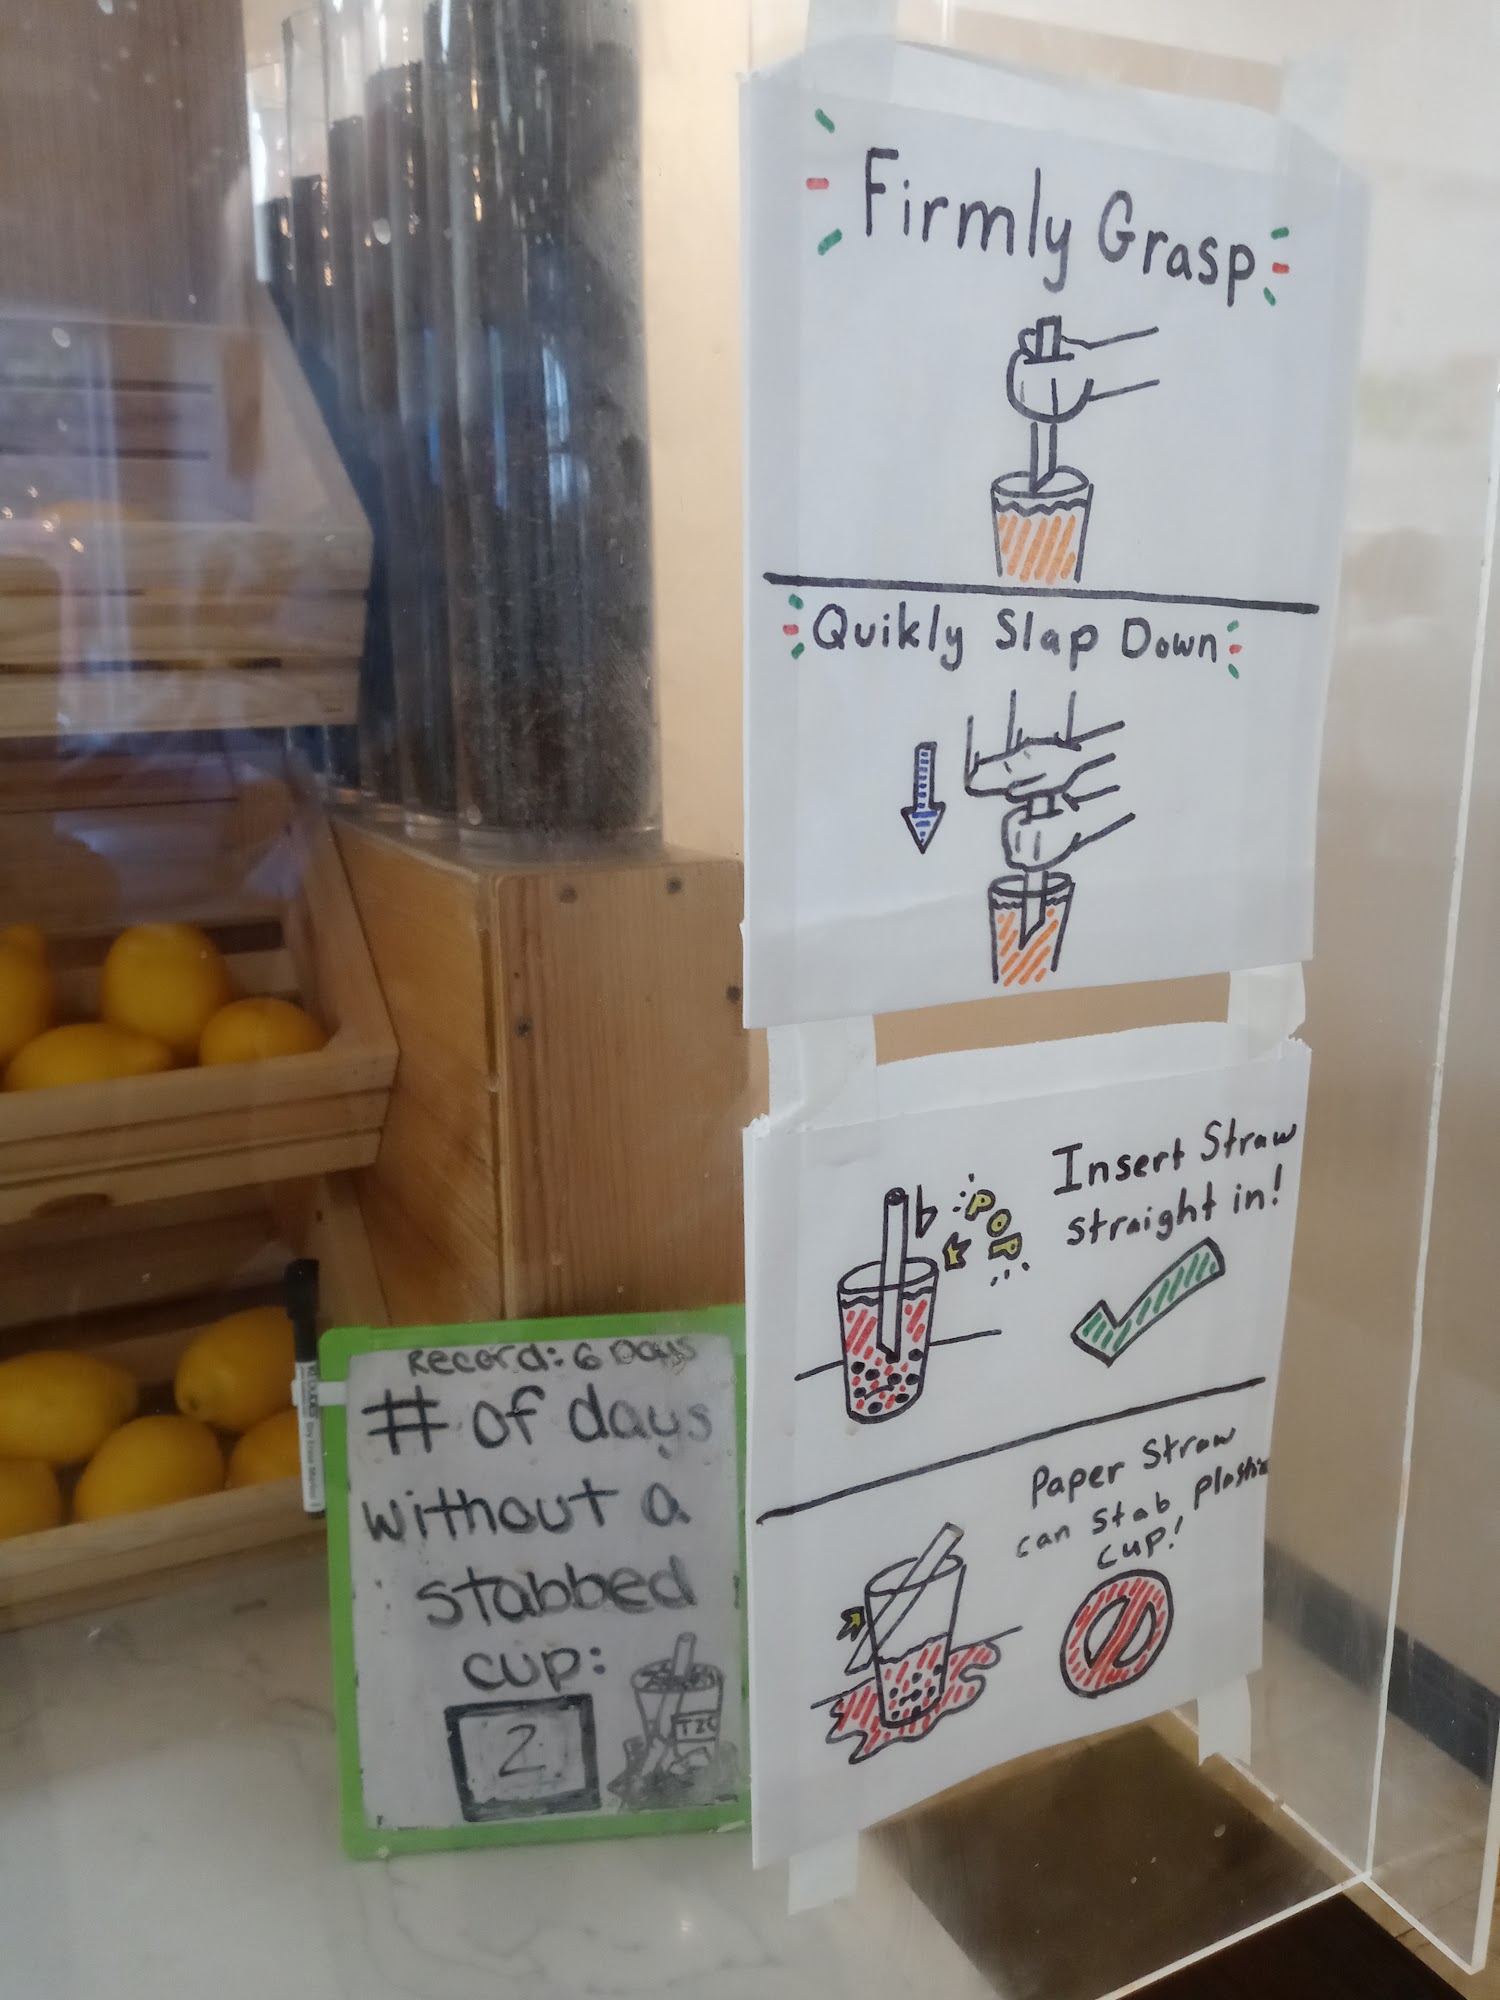 Firmly Grasp
Quikly Slap Down
Insert Straw
straight in!
POP
Paper Straw
can stab plastic
cup!
Record: 6 Days
# of days
without a
stabbed
cup:
2